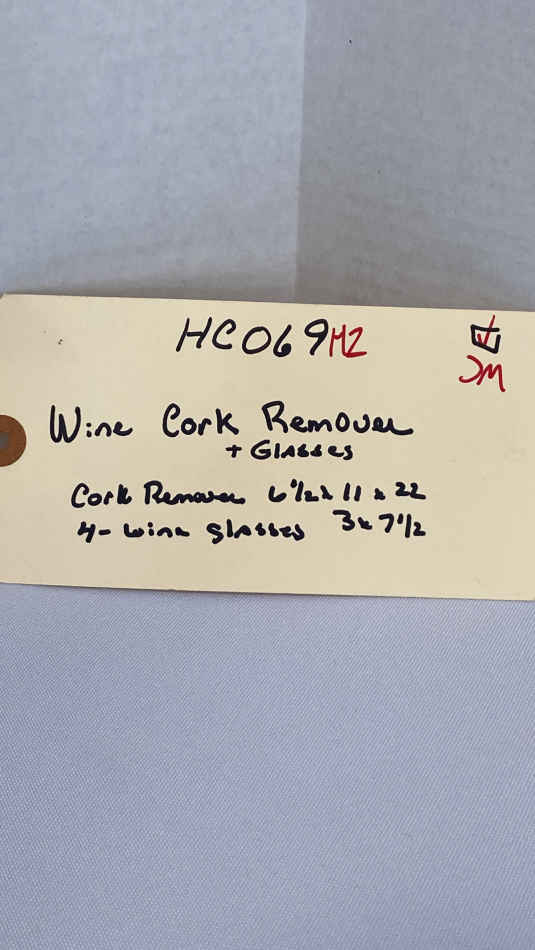 HC069 MZ
JM
Wine Cork Remover
+ Glasses
Cork Remover 6 1/2 x 11 x 22
4- wine glasses 3 x 7 1/2